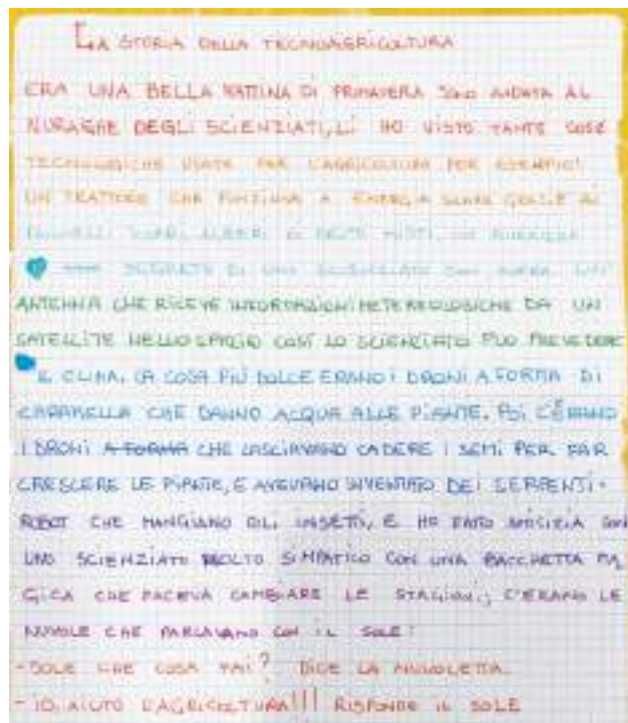 LA STORIA DELLA TECNOAGRICOLTURA
ERA UNA BELLA MATTINA DI PRIMAVERA SONO ANDATA AL
NURAGHE DEGLI SCIENZIATI, LÌ HO VISTO TANTE COSE
TECNOLOGICHE USATE PER L'AGRICOLTURA PER ESEMPIO:
UN TRATTORE CHE FUNZIONA A ENERGIA SOLARE GRAZIE AI
PANNELLI SOLARI, ALBERI DI FRUTTI MISTI, UN
SEGRETO DI UNO SCIENZIATO CHE AVEVA UN'
ANTENNA CHE RICEVE INFORMAZIONI METEREOLOGICHE DA UN
SATELLITE NELLO SPAZIO COSÌ LO SCIENZIATO PUÒ PREVEDERE
IL CLIMA, LA COSA PIÙ DOLCE ERANO I DRONI A FORMA DI
CARAMELLA CHE DANNO ACQUA ALLE PIANTE. POI C'ERANO
I DRONI A FORMA CHE LASCIAVANO CADERE I SEMI PER FAR
CRESCERE LE PIANTE, E AVEVANO INVENTATO DEI SERPENTI-
ROBOT CHE MANGIANO GLI INSETTI, E HO FATTO AMICIZIA CON
UNO SCIENZIATO MOLTO SIMPATICO CON UNA BACCHETTA MA
GICA CHE FACEVA CAMBIARE LE STAGIONI, C'ERANO LE
NUVOLE CHE PARLAVANO CON IL SOLE:
-SOLE CHE COSA FAI? DICE LA NUVOLETTA.
- IO, AIUTO L'AGRICOLTURA!!! RISPONDE IL SOLE